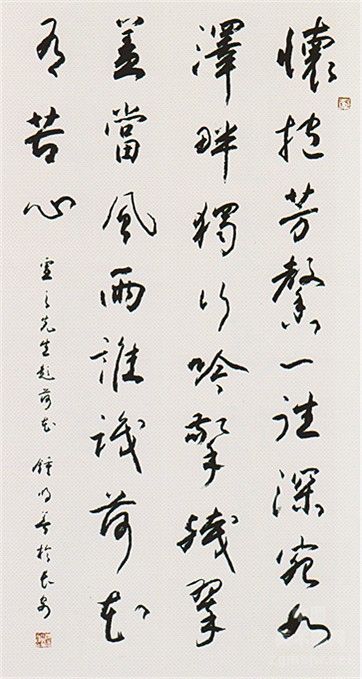 懷抱芳馨一往深宛如
澤畔獨行吟擎殘翠
蓋當風雨誰識荷花
有苦心
之先生題荷花 鍾明善於長安